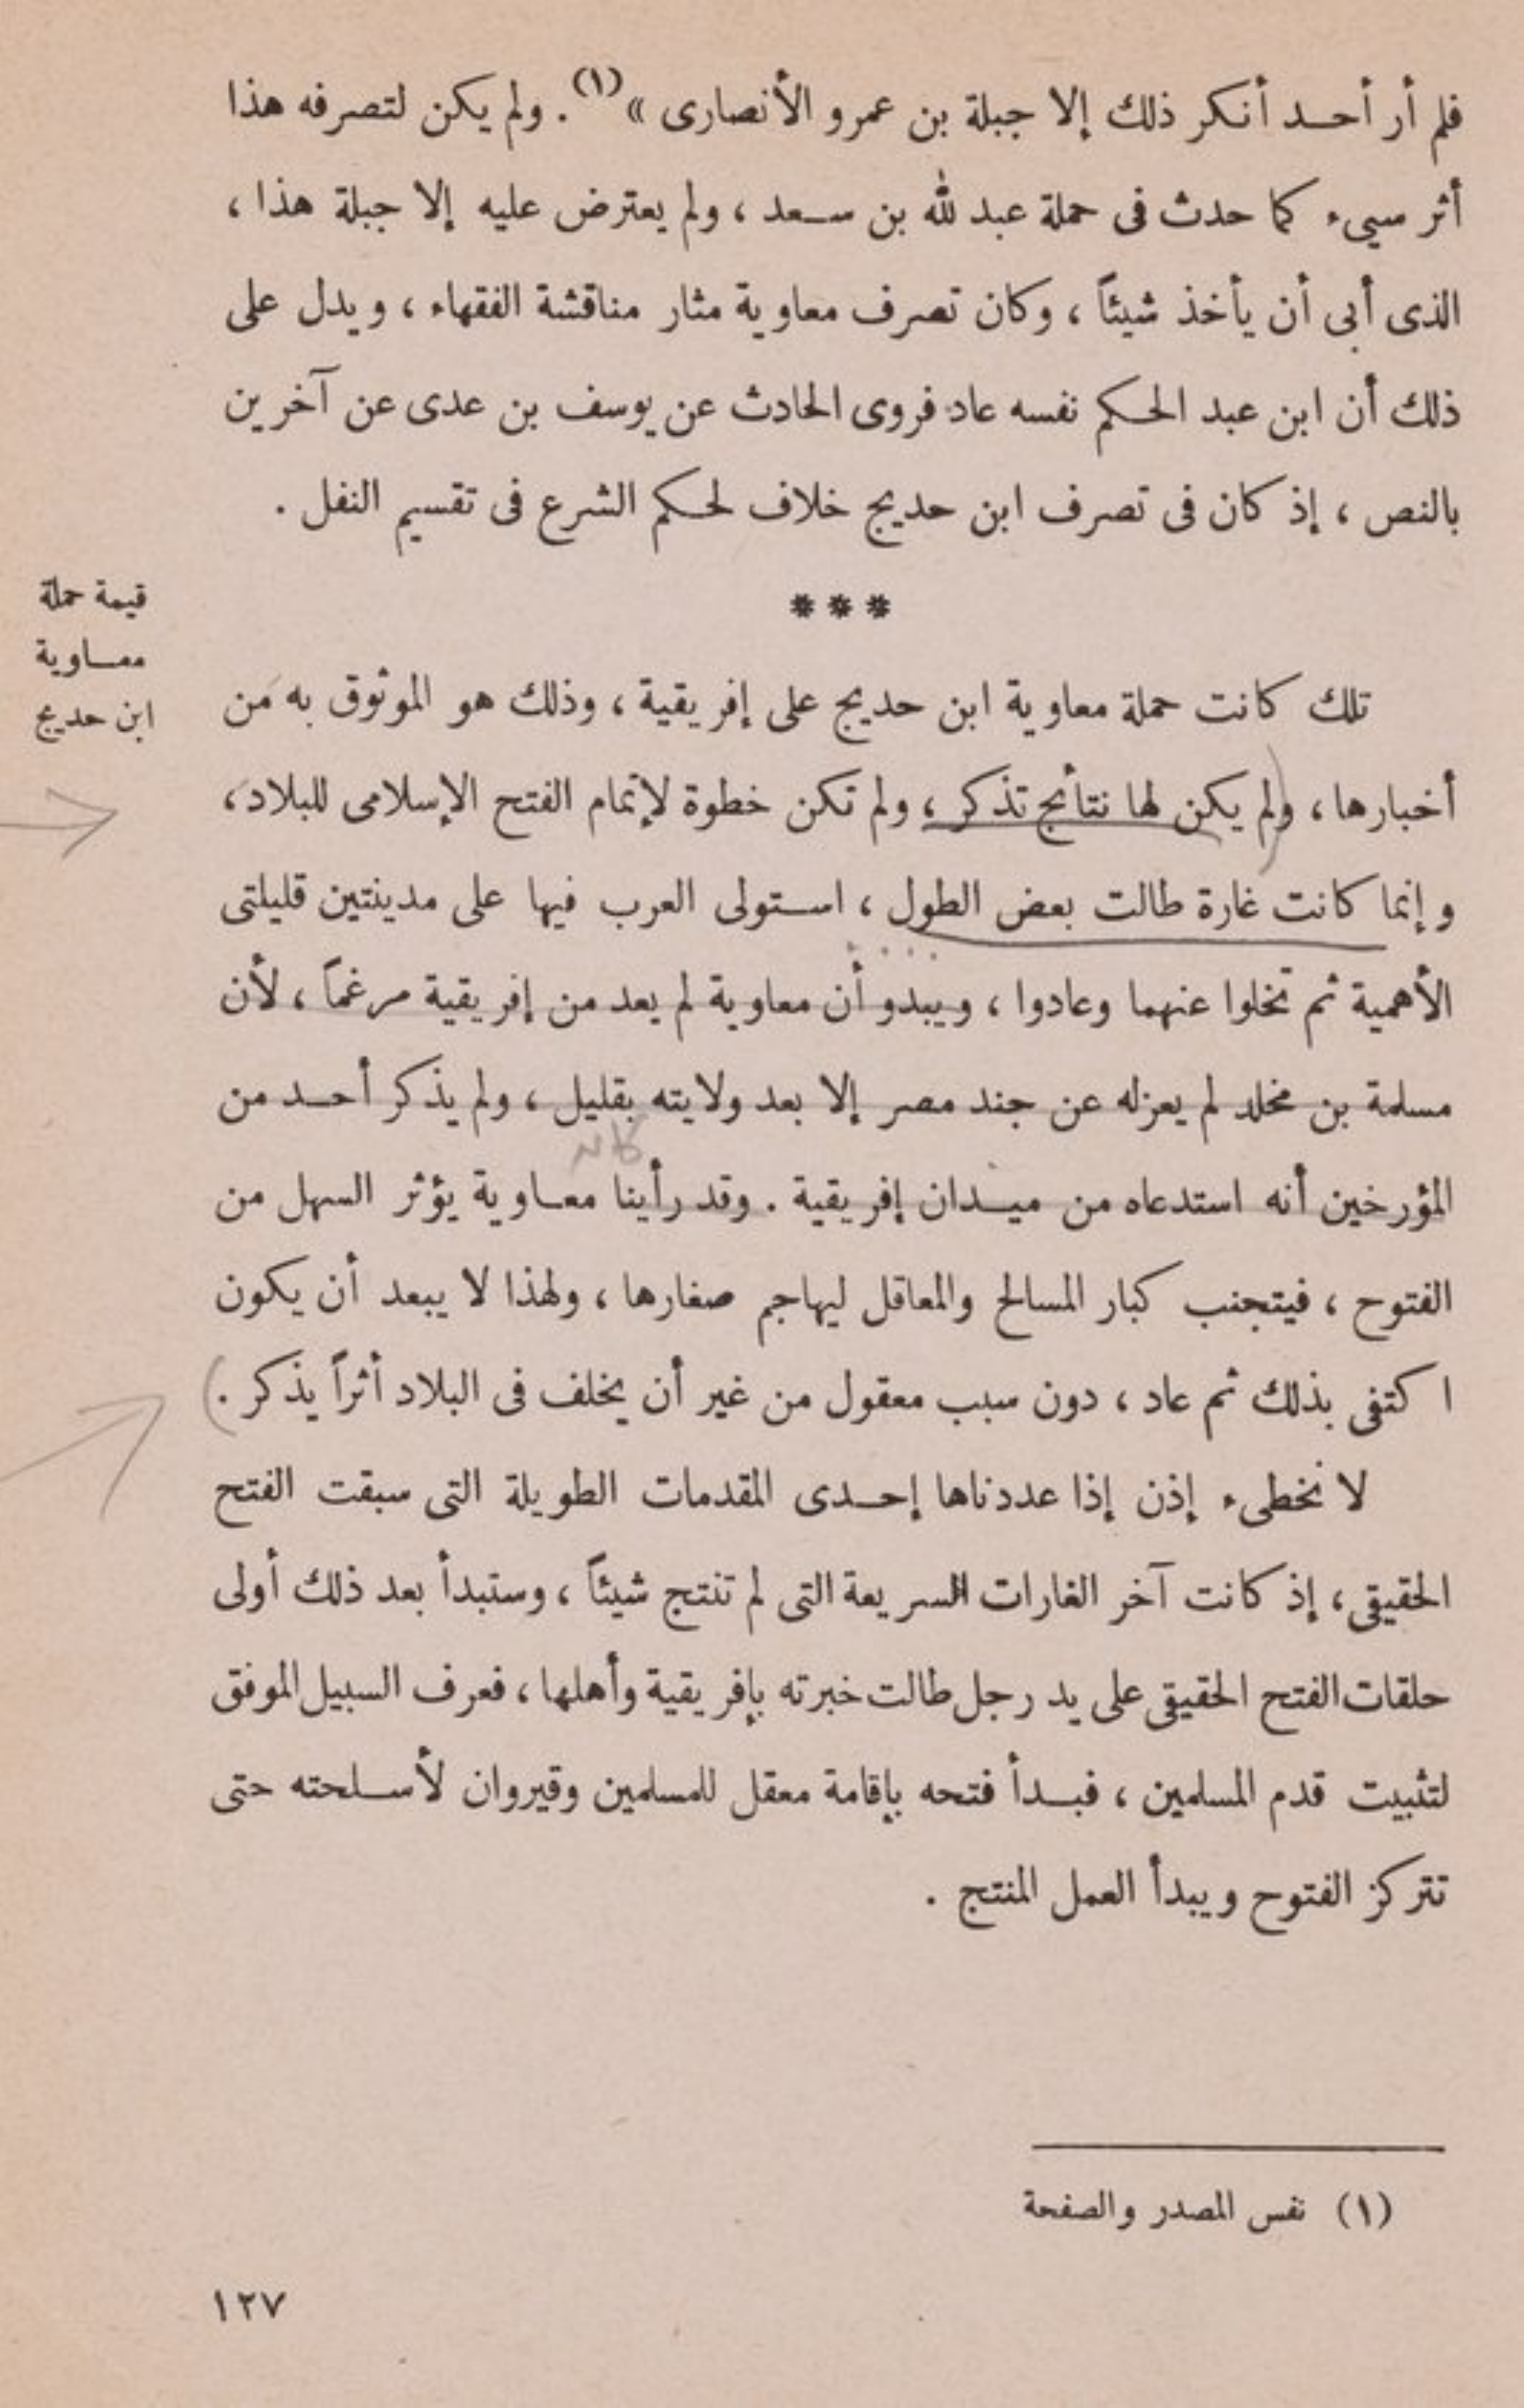 فلم أر أحد أنكر ذلك إلا جبلة بن عمرو الأنصارى »(١). ولم يكن لتصرفه هذا
أثر سيىء كما حدث فى حملة عبد لله بن سعد ، ولم يعترض عليه إلا جبلة هذا ،
الذى أبى أن يأخذ شيئاً ، وكان تصرف معاوية مثار مناقشة الفقهاء ، ويدل على
ذلك أن ابن عبد الحكم نفسه عاد فروى الحادث عن يوسف بن عدى عن آخرين
بالنص ، إذ كان فى تصرف ابن حديج خلاف لحكم الشرع فى تقسيم النفل .
***
قيمة حملة
معاوية
ابن حديج
تلك كانت حملة معاوية ابن حديج على إفريقية ، وذلك هو الموثوق به من
أخبارها ، ولم يكن لها نتائج تذكر ، ولم تكن خطوة لإتمام الفتح الإسلامى للبلاد ،
وإنما كانت غارة طالت بعض الطول ، استولى العرب فيها على مدينتين قليلتى
الأهمية ثم تخلوا عنهما وعادوا ، ويبدو أن معاوية لم يعد من إفريقية مرغماً ، لأن
مسلمة بن مخلد لم يعزله عن جند مصر إلا بعد ولايته بقليل ، ولم يذكر أحد من
المؤرخين أنه استدعاه من ميدان إفريقية . وقد رأينا معاوية يؤثر السهل من
الفتوح ، فيتجنب كبار المسالح والمعاقل ليهاجم صغارها ، ولهذا لا يبعد أن يكون
اكتفى بذلك ثم عاد ، دون سبب معقول من غير أن يخلف فى البلاد أثراً يذكر .
لا نخطىء إذن إذا عددناها إحدى المقدمات الطويلة التى سبقت الفتح
الحقيقى ، إذ كانت آخر الغارات السريعة التى لم تنتج شيئاً ، وستبدأ بعد ذلك أولى
حلقات الفتح الحقيقى على يد رجل طالت خبرته بإفريقية وأهلها ، فعرف السبيل الموفق
لتثبيت قدم المسلمين ، فبدأ فتحه بإقامة معقل للمسلمين وقيروان لأسلحته حتى
تتركز الفتوح ويبدأ العمل المنتج .
(١) نفس المصدر والصفحة
١٢٧